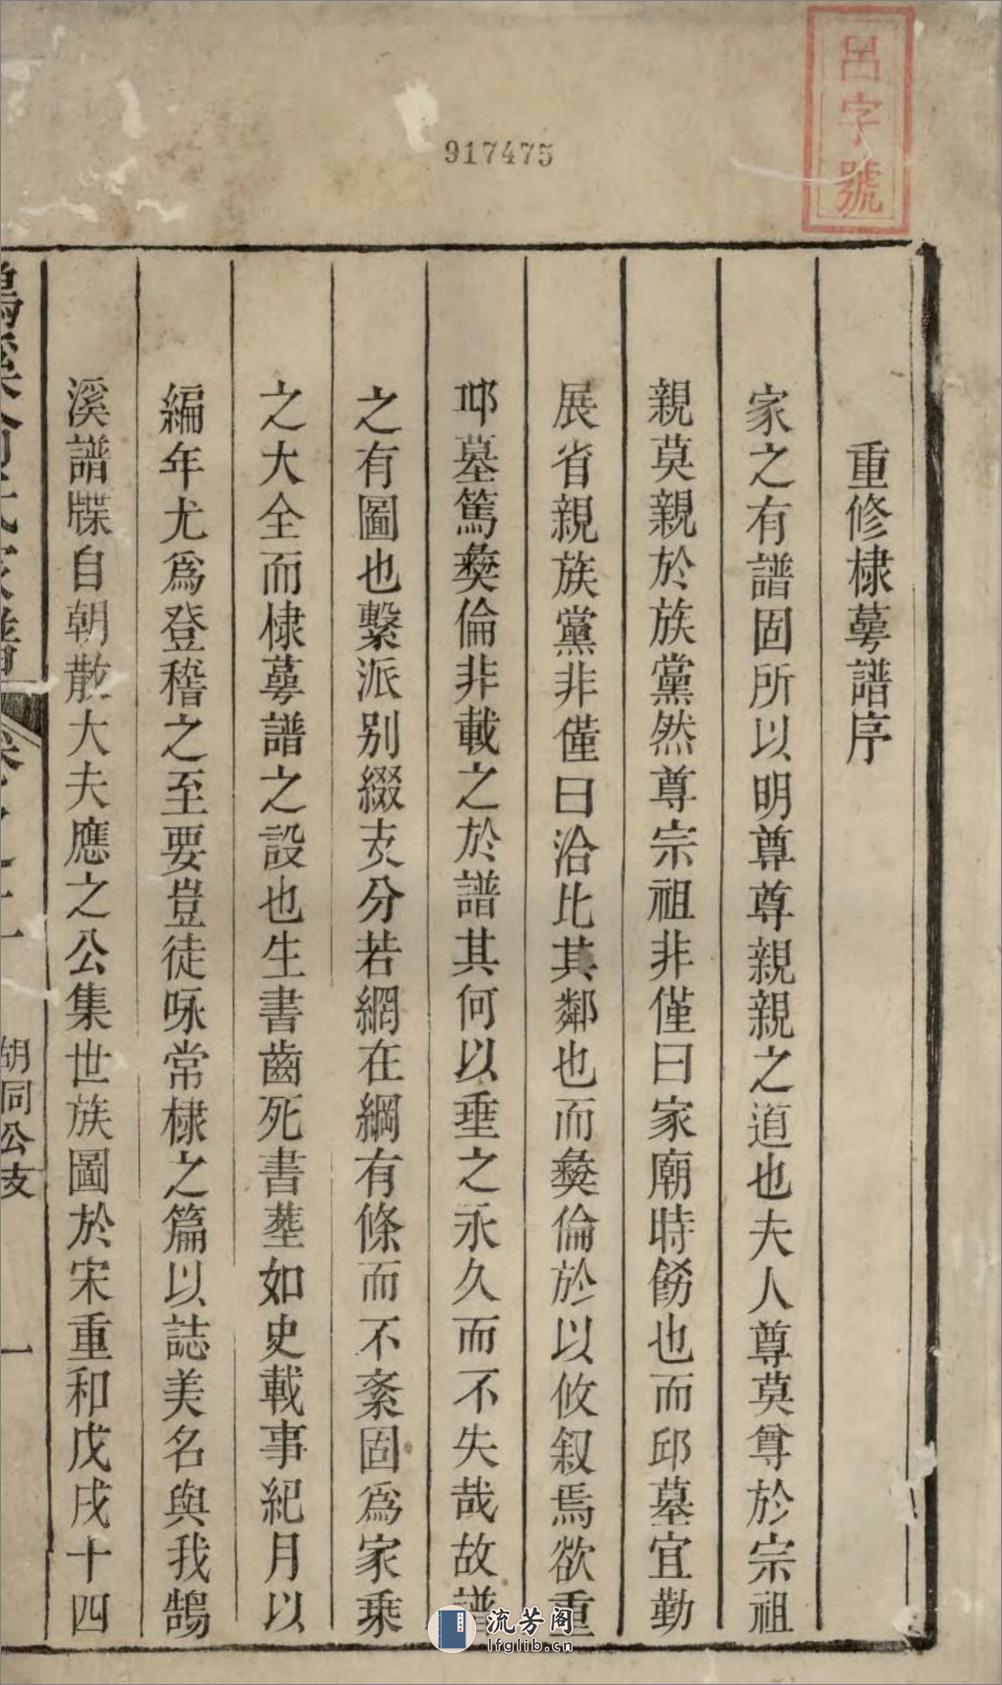 呂字號
917475
重修棣蕚譜序
家之有譜固所以明尊尊親親之道也夫人尊莫尊於宗祖
親莫親於族黨然尊宗祖非僅曰家廟時餝也而邱墓宜勤
展省親族黨非僅曰洽比其鄰也而彜倫於以攸叙焉欲重
邱墓篤彜倫非載之於譜其何以垂之永久而不失哉故譜
之有圖也繫派别綴支分若網在綱有條而不紊固爲家乗
之大全而棣蕚譜之設也生書齒死書塟如史載事紀月以
編年尤爲登稽之至要豈徒咏常棣之篇以誌美名與我鵠
溪譜牒自朝散大夫應之公集世族圖於宋重和戊戌十四
胡同公支
一
流芳阁
lfglib.cn